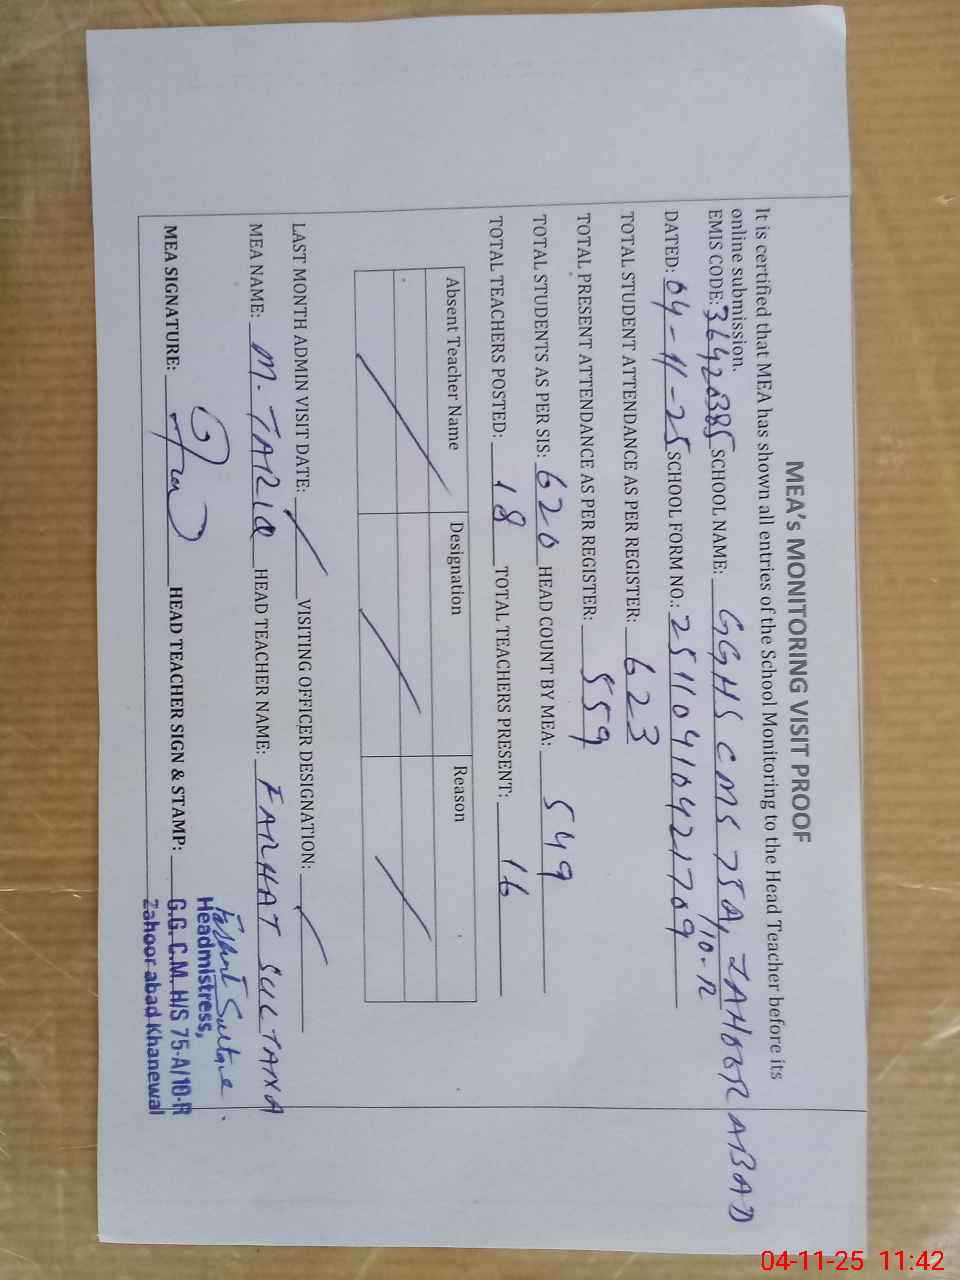 MEA's MONITORING VISIT PROOF
It is certified that MEA has shown all entries of the School Monitoring to the Head Teacher before its
online submission.
EMIS CODE: 36420385 SCHOOL NAME: GGHS CMS 75A/10-R ZAHOOR ABAD
DATED: 04-11-25 SCHOOL FORM NO.: 25110410421709
TOTAL STUDENT ATTENDANCE AS PER REGISTER: 623
TOTAL PRESENT ATTENDANCE AS PER REGISTER: 559
TOTAL STUDENTS AS PER SIS: 620 HEAD COUNT BY MEA: 549
TOTAL TEACHERS POSTED: 18 TOTAL TEACHERS PRESENT: 16
Absent Teacher Name Designation Reason
LAST MONTH ADMIN VISIT DATE: VISITING OFFICER DESIGNATION:
MEA NAME: M. TARIQ HEAD TEACHER NAME: FARHAT SULTANA
MEA SIGNATURE: HEAD TEACHER SIGN & STAMP:
Headmistress,
G.G. C.M. H/S 75-A/10-R
Zahoor abad Khanewal
04-11-25 11:42